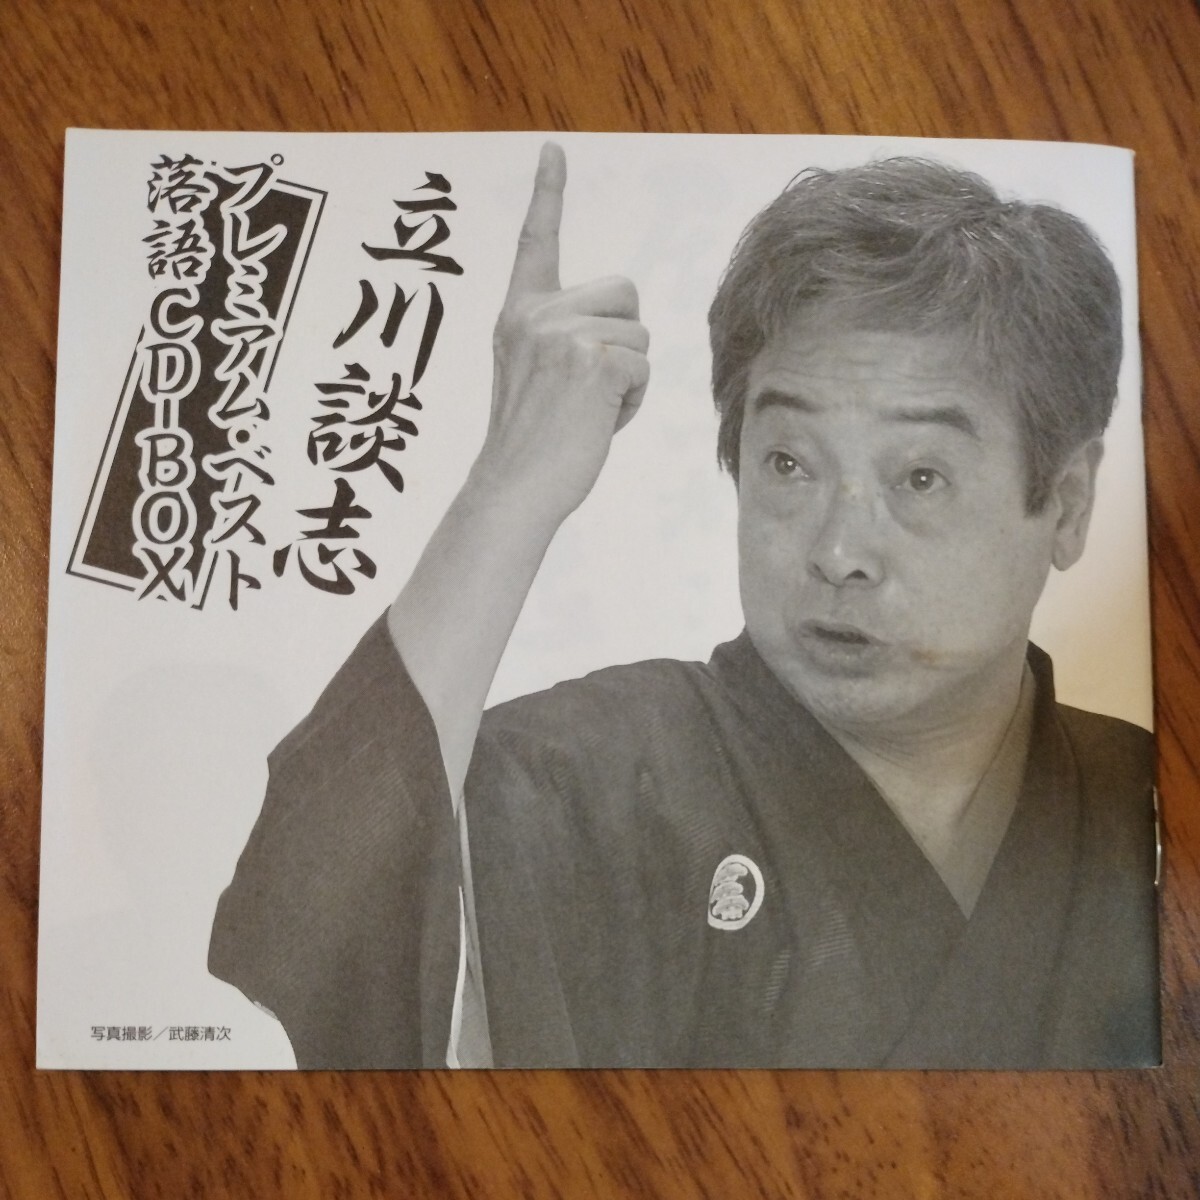 立川談志
プレミアム・ベスト
落語CD-BOX
写真撮影／武藤清次